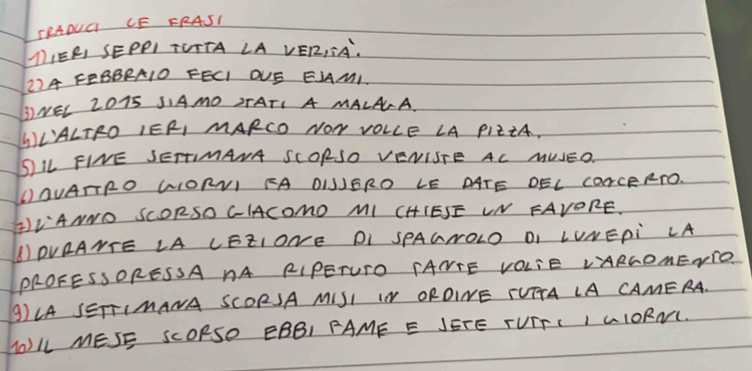 TRADUCI LE FRASI
1) IERI SEPPI TUTTA LA VERITÀ.
2) A FEBBRAIO FECI DUE ESAMI.
3) NEL 2015 SIAMO STATI A MALAGA.
4) L'ALTRO IERI MARCO NON VOLLE LA PIZZA.
5) IL FINE SETTIMANA SCORSO VENISTE AL MUSEO.
6) QUATTRO GIORNI FA DISSERO LE DATE DEL CONCERTO.
7) L'ANNO SCORSO GIACOMO MI CHIESE UN FAVORE.
8) DURANTE LA LEZIONE DI SPAGNOLO DI LUNEDÌ LA
PROFESSORESSA HA RIPETUTO TANTE VOLTE L'ARGOMENTO.
9) LA SETTIMANA SCORSA MISI IN ORDINE TUTTA LA CAMERA.
10) IL MESE SCORSO EBBI FAME E SETE TUTTI I GIORNI.